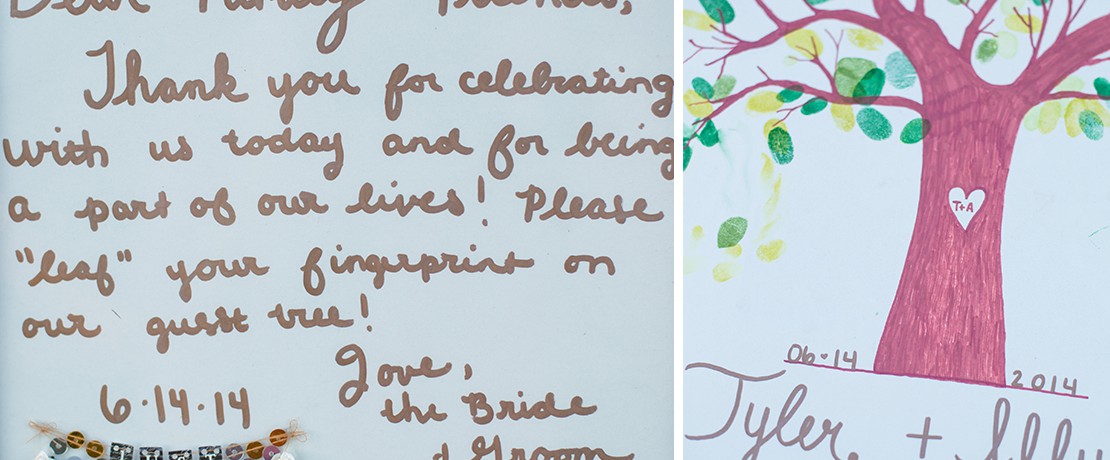 Dear Family Friends,
Thank you for celebrating
with us today and for being
a part of our lives! Please
"leaf" your fingerprint on
our guest tree!
Love,
6.14.14
the Bride
Groom
T+A
06.14
2014
Tyler +